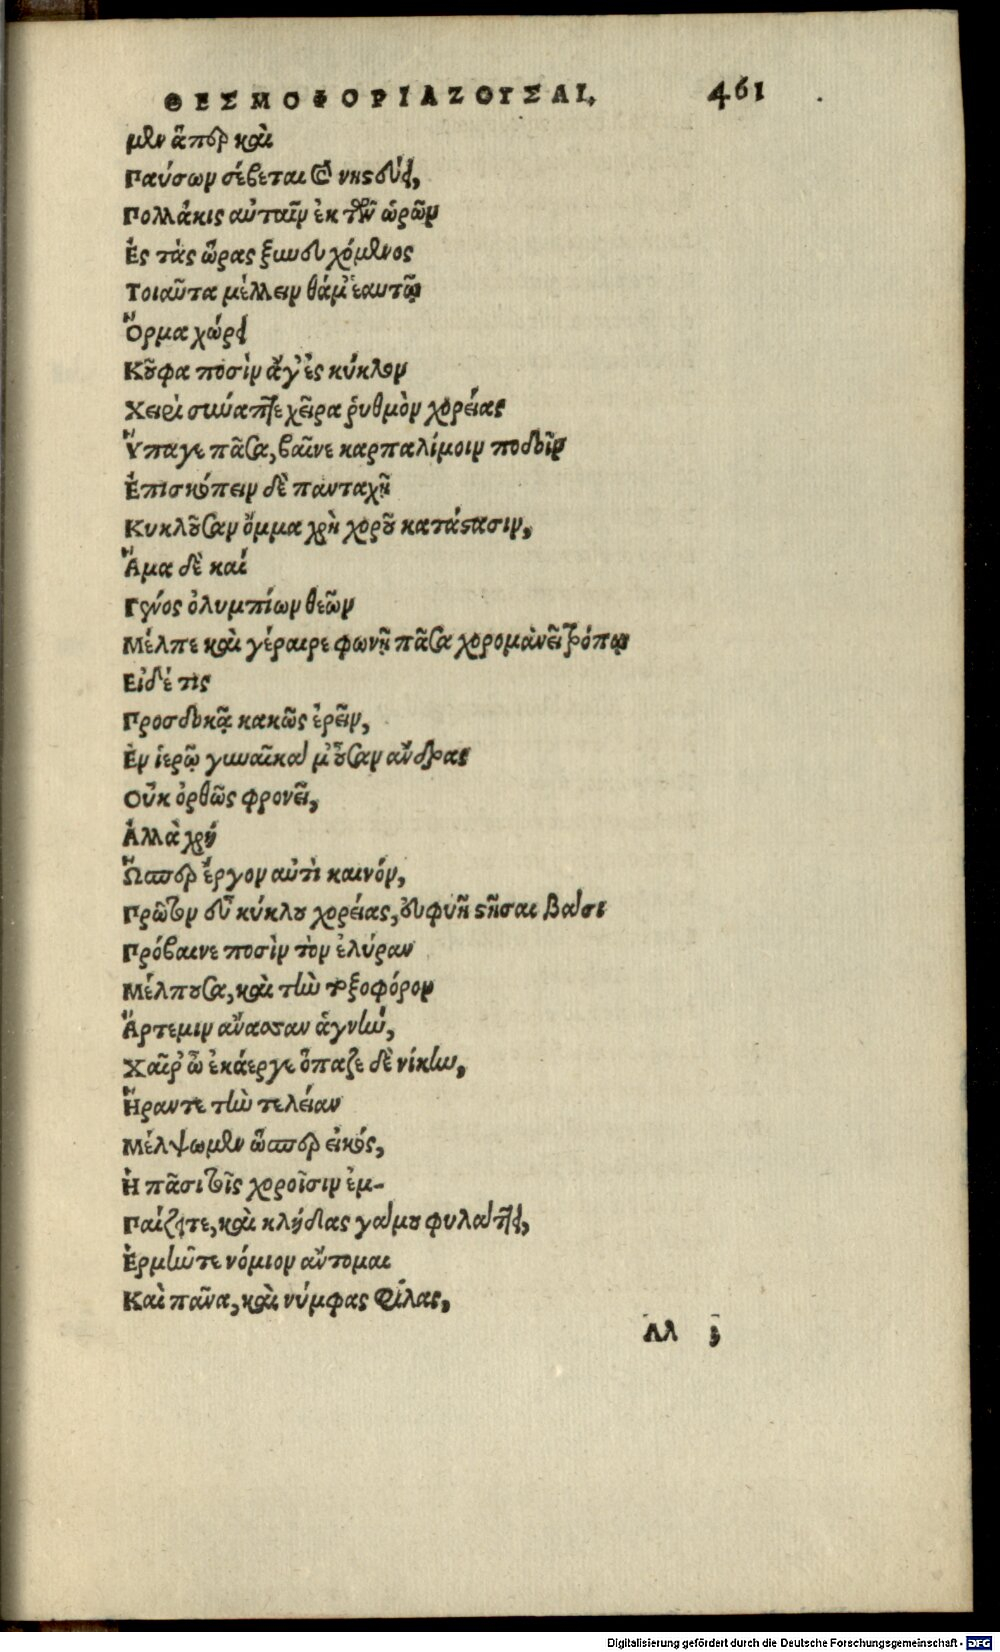 ΘΕΣΜΟΦΟΡΙΑΖΟΥΣΑΙ. 461
μεν ἅπερ καὶ
Παύσων σέβεται καὶ νηστεύει,
Πολλάκις αὐταῖν ἐκ τῶν ὡρῶν
Ἐς τὰς ὥρας ξυνευχόμενος
Τοιαῦτα μέλλειν θάμ' ἑαυτῷ
Ὅρμα χώρει
Κοῦφα ποσὶν ἄγ' ἐς κύκλον
Χειρὶ σύναπτε χεῖρα ῥυθμὸν χορείας
Ὕπαγε πᾶσα, βαῖνε καρπαλίμοιν ποδοῖν
Ἐπισκοπειν δὲ πανταχῆ
Κυκλοῦσαν ὄμμα χρὴ χοροῦ κατάστασιν,
Ἅμα δὲ καί
Γένος ὀλυμπίων θεῶν
Μέλπε καὶ γέραιρε φωνῇ πᾶσα χορομανεῖ τρόπῳ
Εἰδέ τις
Προσδοκᾷ κακῶς ἐρεῖν,
Ἐν ἱερῷ γυναῖκα μ' οὖσαν ἄνδρας
Οὐκ ὀρθῶς φρονεῖ,
Ἀλλὰ χρή
Ὥσπερ ἔργον αὖτι καινόν,
Πρῶτον εὖ κύκλου χορείας, ευφυῆ στῆσαι βάσι
Πρόβαινε ποσὶν τὸν ἐλύραν
Μέλπουσα, καὶ τὴν τοξοφόρον
Ἄρτεμιν ἄνασσαν ἁγνήν,
Χαῖρ' ὦ ἑκάεργε ὄπαζε δὲ νίκην,
Ἥραντε τὴν τελείαν
Μέλψωμεν ὥσπερ εἰκός,
Ἡ πᾶσι τοῖς χοροῖσιν ἐμ-
Παίζει τε, καὶ κλῇδας γάμου φυλάττει,
Ἑρμῆντε νόμιον ἄντομαι
Καὶ πᾶνα, καὶ νύμφας φίλας,
Λλ 3